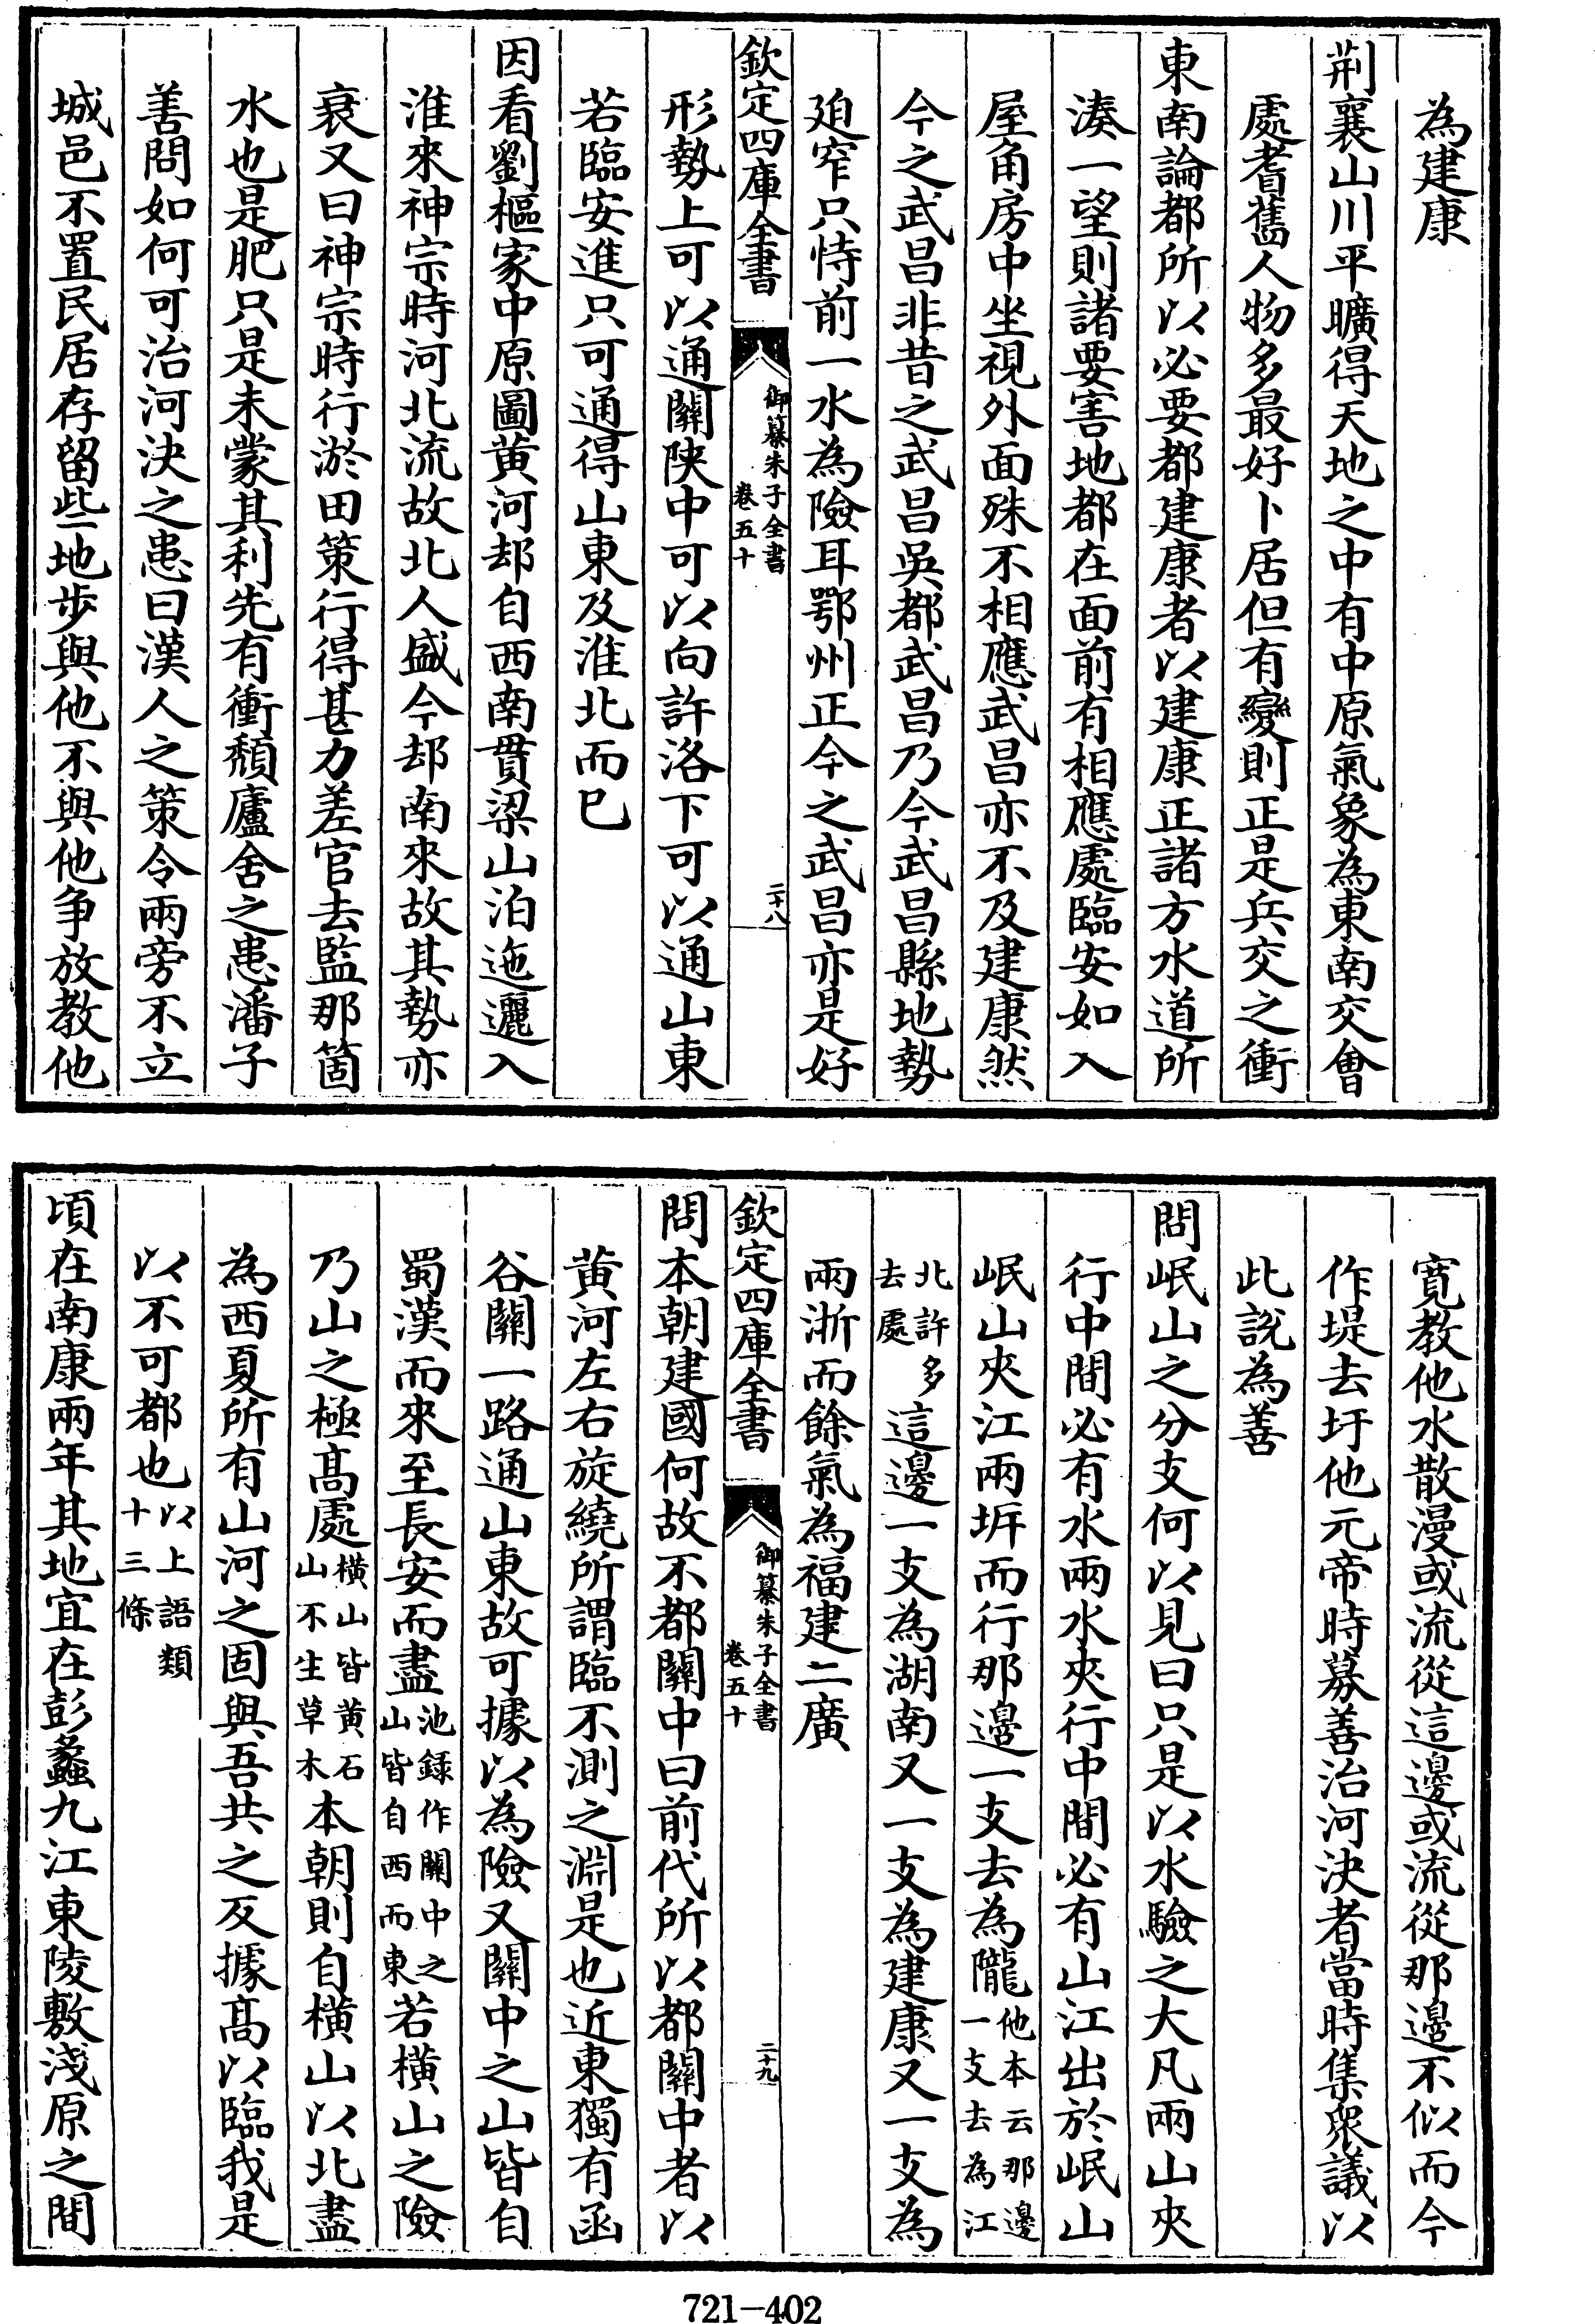 為建康
荆襄山川平曠得天地之中有中原氣象為東南交會
處耆舊人物多最好卜居但有變則正是兵交之衝
東南論都所以必要都建康者以建康正諸方水道所
湊一望則諸要害地都在面前有相應處臨安如入
屋角房中坐視外面殊不相應武昌亦不及建康然
今之武昌非昔之武昌吳都武昌乃今武昌縣地勢
廹窄只恃前一水為險耳鄂州正今之武昌亦是好
欽定四庫全書
御纂朱子全書
卷五十
二十八
形勢上可以通關陜中可以向許洛下可以通山東
若臨安進只可通得山東及淮北而已
因看劉樞家中原圖黄河却自西南貫梁山泊迤邐入
淮來神宗時河北流故北人盛今却南來故其勢亦
衰又曰神宗時行淤田策行得甚力差官去監那箇
水也是肥只是未蒙其利先有衝頽廬舍之患潘子
善問如何可治河決之患曰漢人之策令兩旁不立
城邑不置民居存留些地步與他不與他争放教他
寛教他水散漫或流從這邊或流從那邊不似而今
作堤去圩他元帝時募善治河決者當時集衆議以
此說為善
問岷山之分支何以見曰只是以水驗之大凡兩山夾
行中間必有水兩水夾行中間必有山江出於岷山
岷山夾江兩坼而行那邊一支去為隴他本云那邊
一支去為江
北許多
去處這邊一支為湖南又一支為建康又一支為
兩浙而餘氣為福建二廣
欽定四庫全書
御纂朱子全書
卷五十
二十九
問本朝建國何故不都關中曰前代所以都關中者以
黄河左右旋繞所謂臨不測之淵是也近東獨有函
谷關一路通山東故可據以為險又關中之山皆自
蜀漢而來至長安而盡池錄作關中之
山皆自西而東若橫山之險
乃山之極髙處橫山皆黄石
山不生草木本朝則自橫山以北盡
為西夏所有山河之固與吾共之反據髙以臨我是
以不可都也以上語類
十三條
頃在南康兩年其地宜在彭蠡九江東陵敷淺原之間
721-402